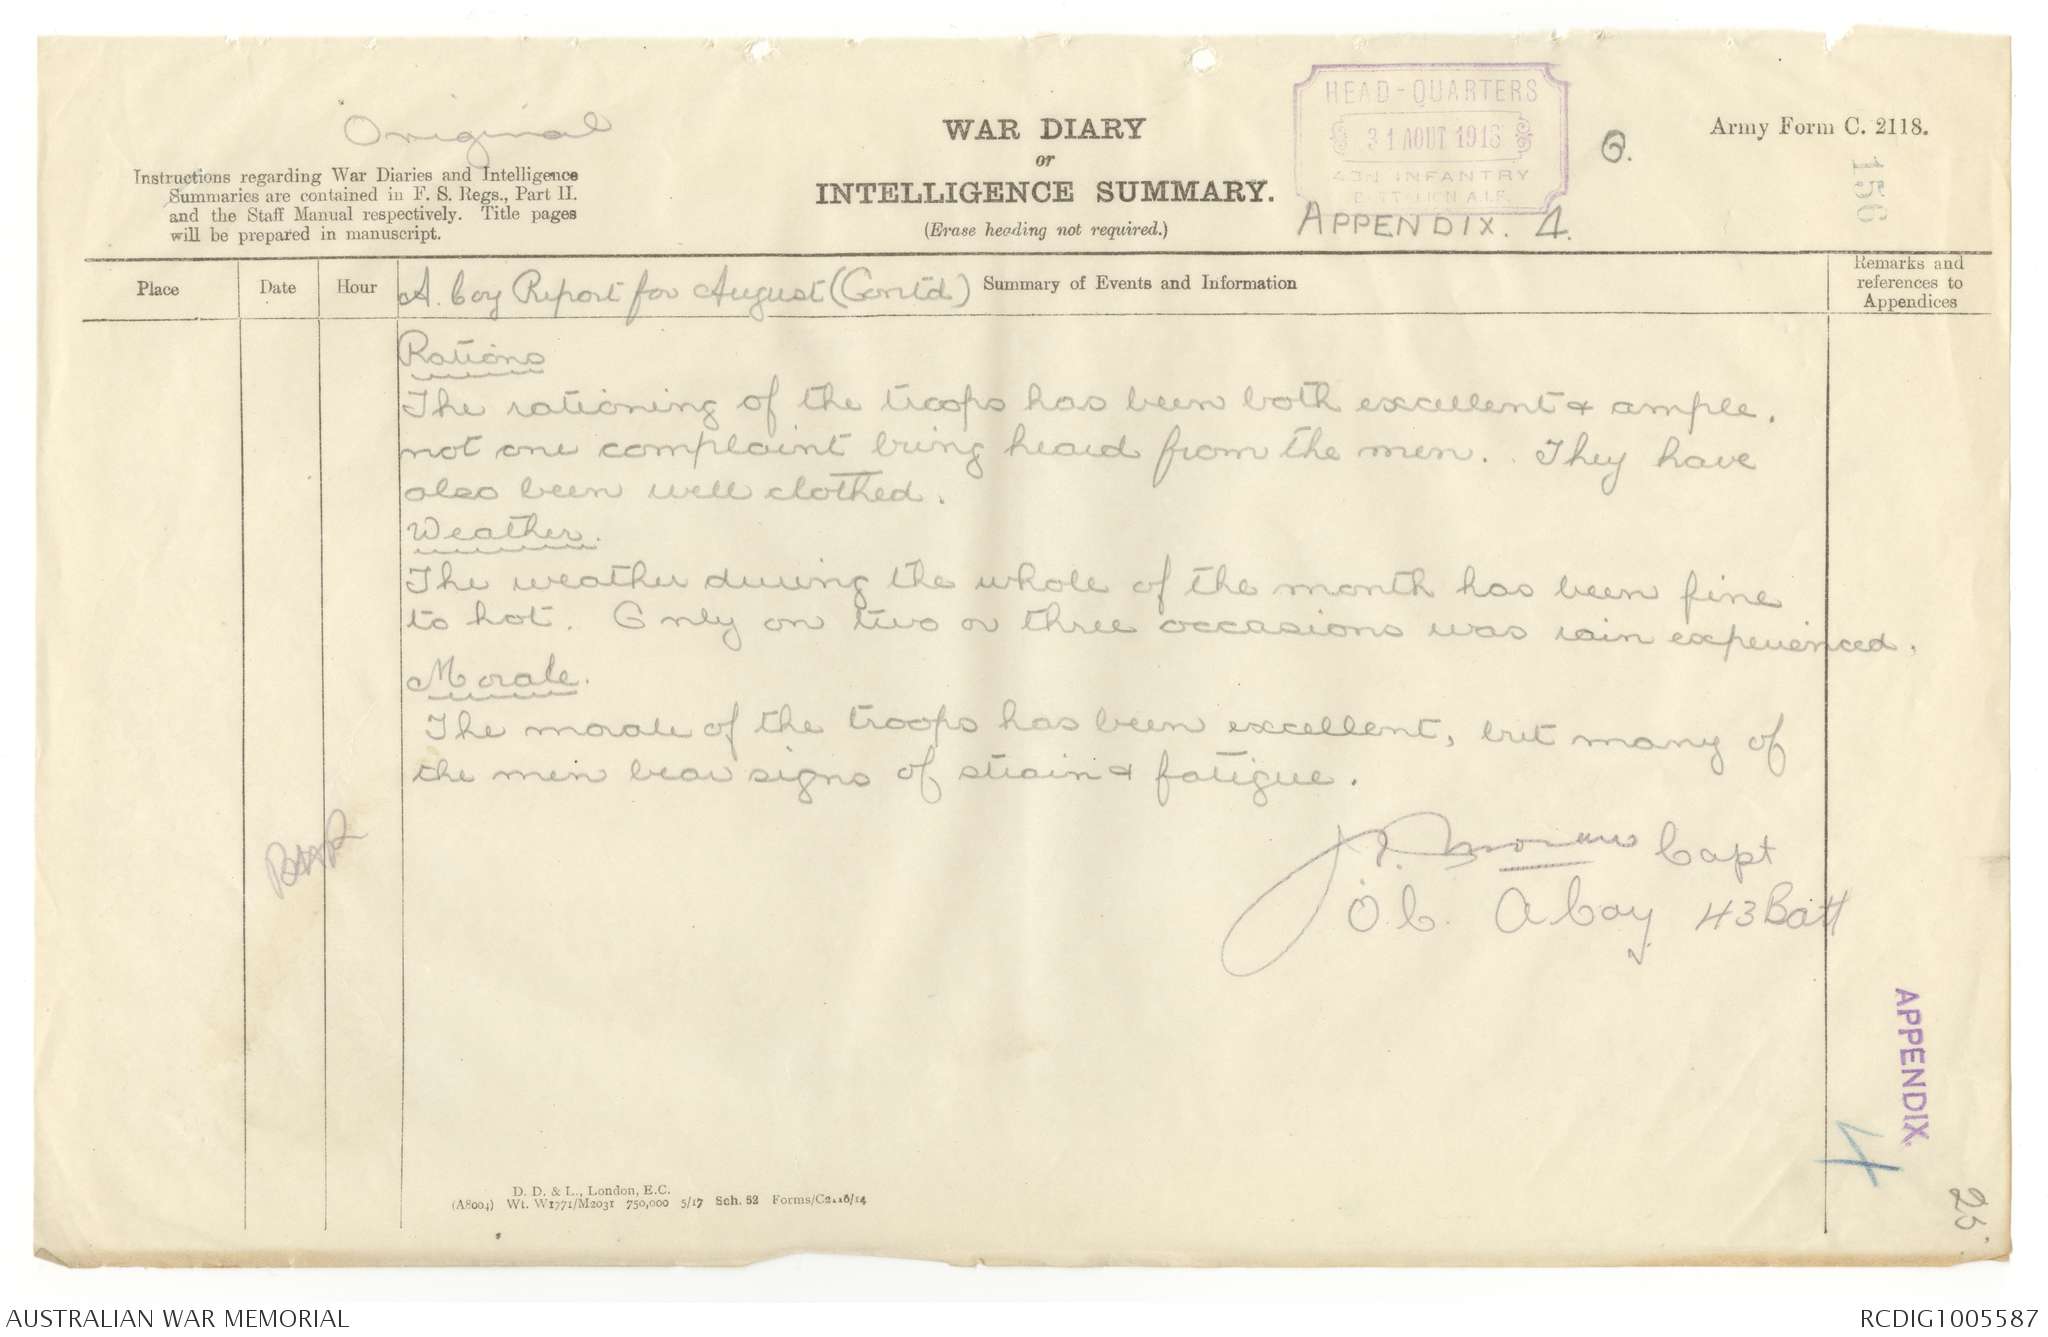 Original
Instructions regarding War Diaries and Intelligence
Summaries are contained in F. S. Regs., Part II.
and the Staff Manual respectively. Title pages
will be prepared in manuscript.
WAR DIARY
or
INTELLIGENCE SUMMARY.
(Erase heading not required.)
HEAD-QUARTERS
31 AOUT 1918
43RD INFANTRY
BATTALION A.I.F.
6.
APPENDIX. 4.
Army Form C. 2118.
156
Place
Date
Hour
A. Coy Report for August (Cont'd) Summary of Events and Information
Remarks and
references to
Appendices
Rations
The rationing of the troops has been both excellent & ample.
not one complaint being heard from the men. They have
also been well clothed.
Weather.
The weather during the whole of the month has been fine
to hot. Only on two or three occasions was rain experienced.
Morale.
The morale of the troops has been excellent, but many of
the men bear signs of strain & fatigue.
Capt
O.C. A Coy 43 Batt
APPENDIX.
4
25.
D. D. & L., London, E.C.
(A8004) Wt. W1771/M2031 750,000 5/17 Sch. 52 Forms/C2118/14
AUSTRALIAN WAR MEMORIAL
RCDIG1005587